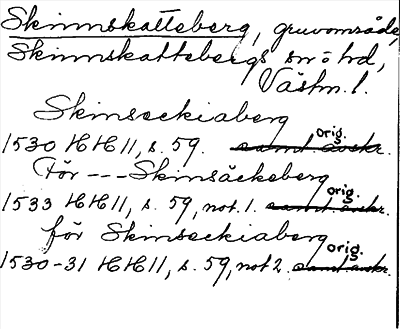 Skinnskatteberg, gruvområde,
Skinnskattebergs sn o hd,
Västm. l.
Skinseckiaberg
1530 HH 11, s. 59. samt. avskr. orig.
För --- Skinsäckeberg
1533 HH 11, s. 59, not. 1. samt. avskr. orig.
för Skinseckiaberg
1530-31 HH 11, s. 59, not 2. samt avskr. orig.